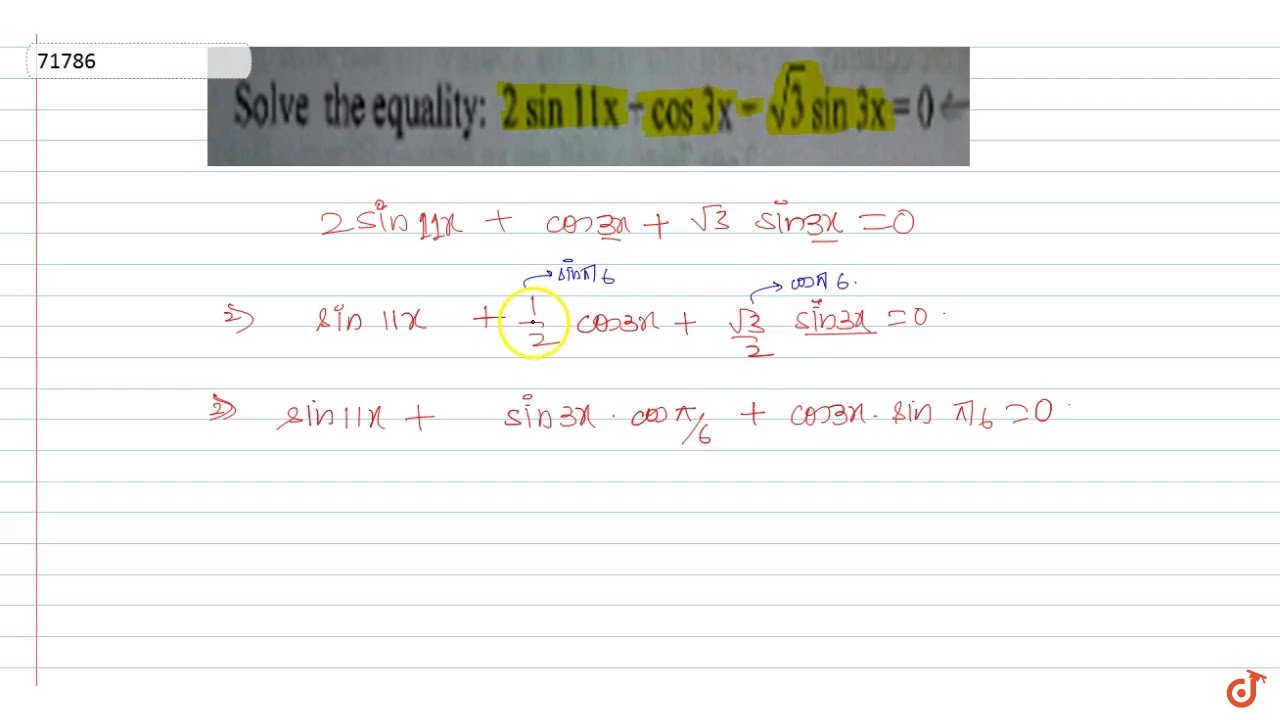 71786
Solve the equality: 2 sin 11x - cos 3x - √3 sin 3x = 0 ←
2 sin 11x + cos 3x + √3 sin 3x = 0
→ sin π/6
→ cos π/6.
⇒) sin 11x + 1/2 cos 3x + √3/2 sin 3x = 0.
⇒) sin 11x + sin 3x . cos π/6 + cos 3x . sin π/6 = 0.